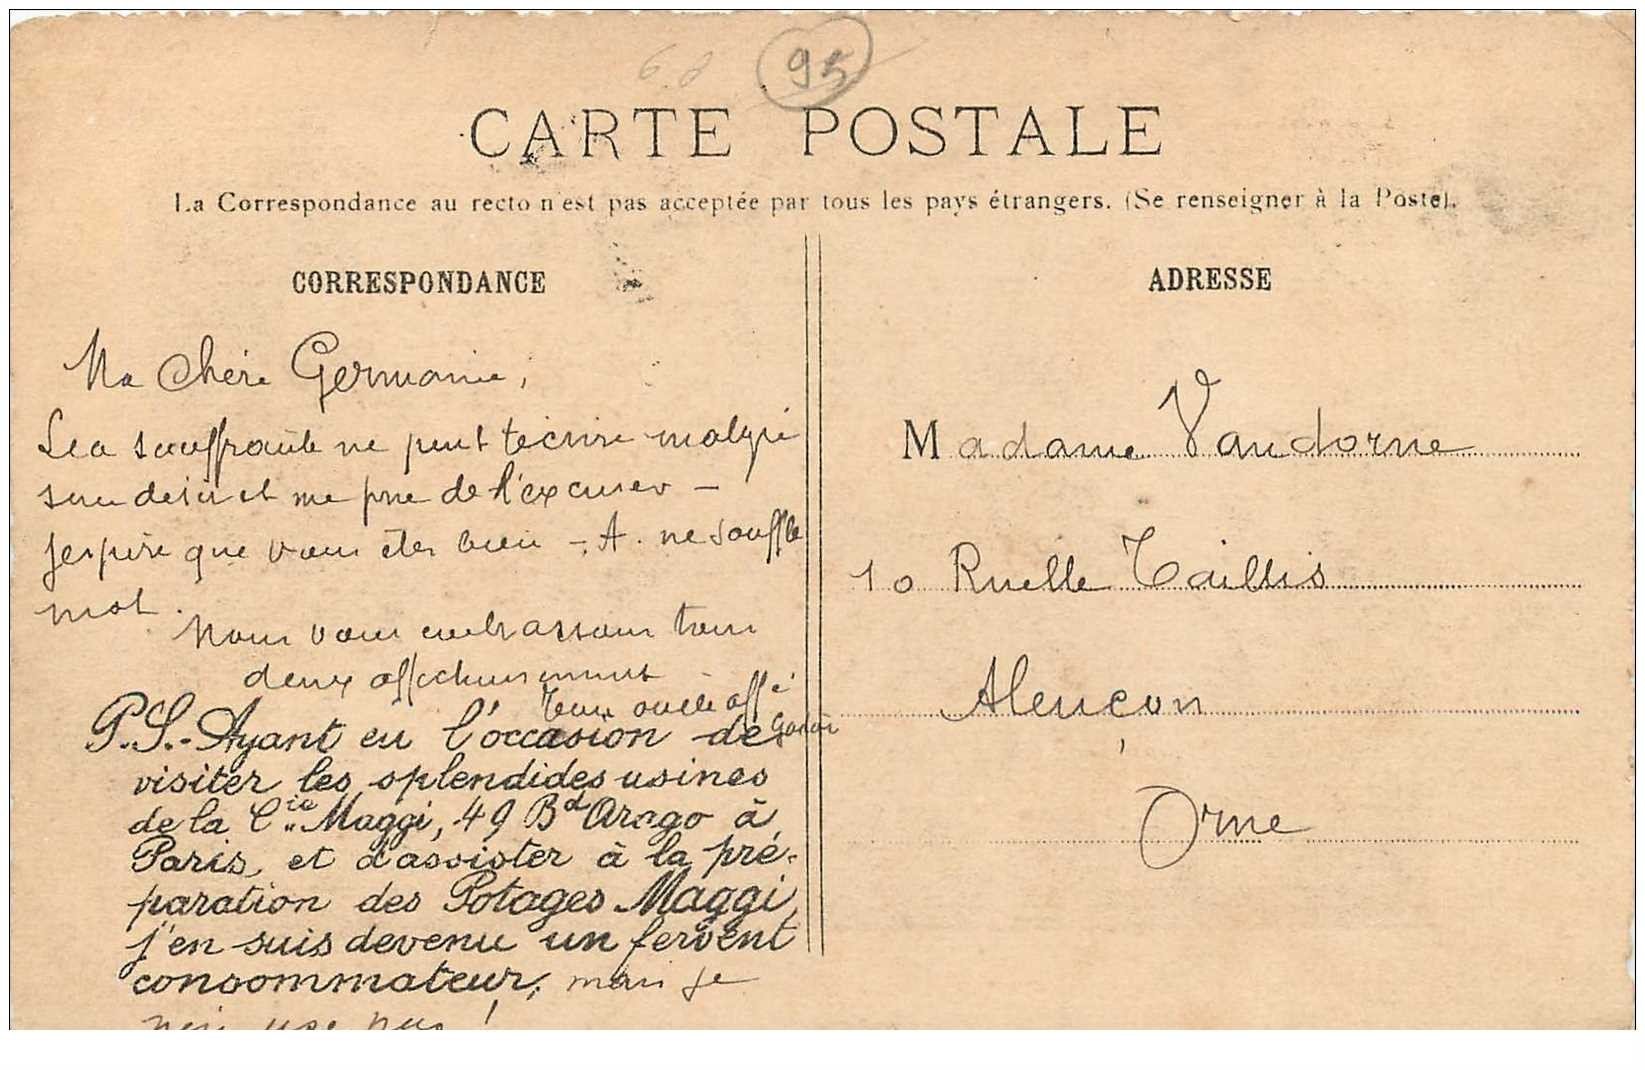 95
CARTE POSTALE
La Correspondance au recto n'est pas acceptée par tous les pays étrangers. (Se renseigner à la Poste).
CORRESPONDANCE
Ma Chère Germaine,
Léa souffrante ne peut t'écrire malgré
son désir et me prie de l'excuser -
J'espère que vous êtes bien - A. ne souffle
mot.
Nous vous embrassons tous
deux affectueusement
P.S.- Ayant eu l'occasion de
visiter les splendides usines
de la Cie Maggi, 49 Bd Arago à
Paris, et d'assister à la pré-
paration des Potages Maggi,
j'en suis devenu un fervent
consommateur, mais je
n'en use pas !
ADRESSE
Madame Vandorne
10 Ruelle Taillis
Alençon
Orne